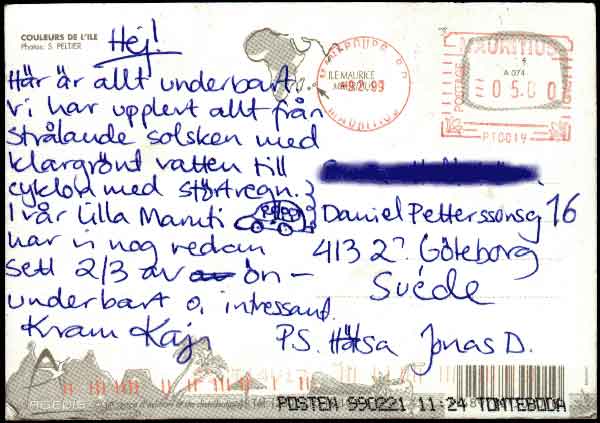 COULEURS DE L'ILE
Photos: S. PELTIER
Hej!
Här är allt underbart.
Vi har upplevt allt från
strålande solsken med
klargrönt vatten till
cyklon med störtregn.
I vår lilla Maruti
har vi nog redan
sett 2/3 av ön –
underbart o. intressant.
Kram Kaj
ILE MAURICE
MAURITIUS
MAURITIUS
A 074
POSTAGE
05.00
PT0019
Daniel Petterssonsg 16
413 27 Göteborg
Suéde
PS. Hälsa Jonas D.
AGEDIS
POSTEN 990221 11:24 TOMTEBODA